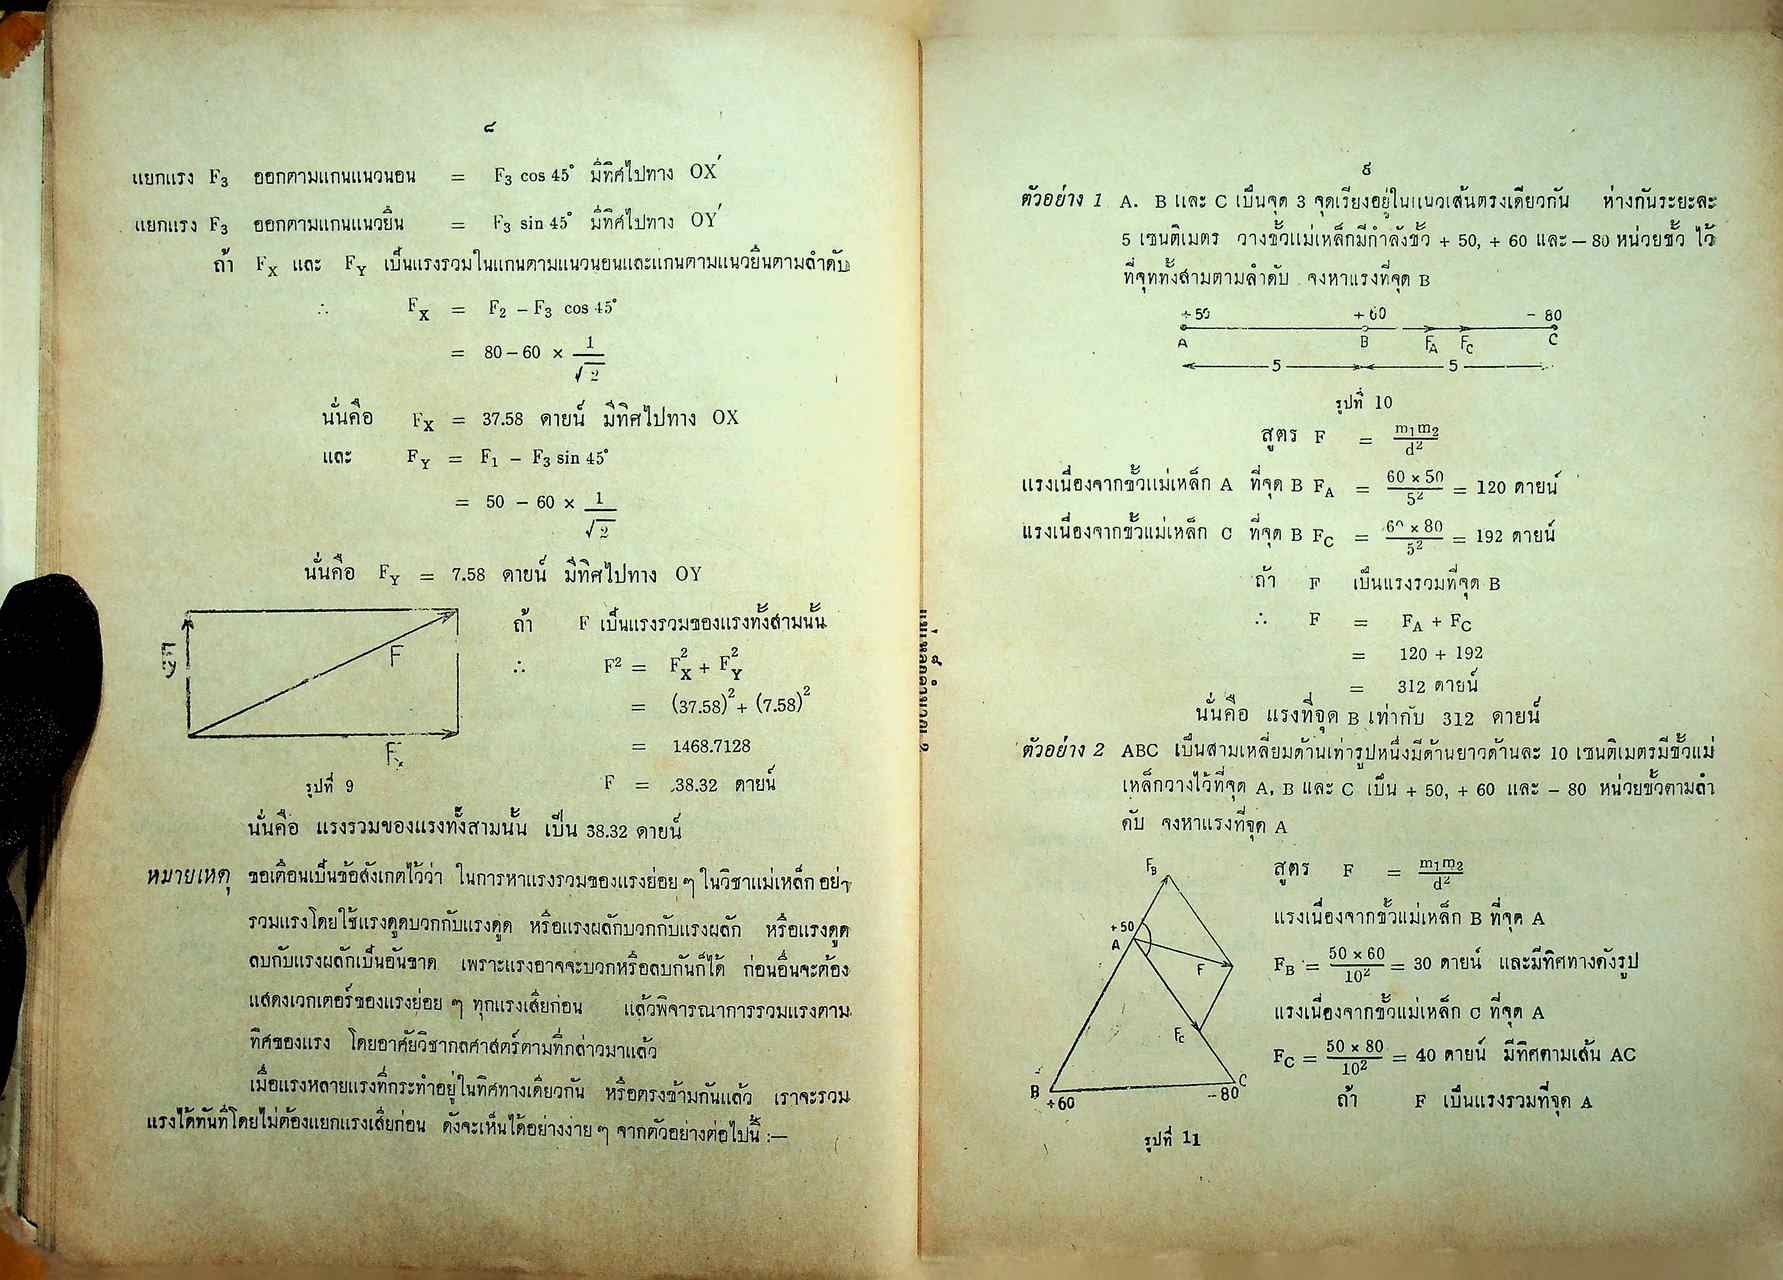 ๘
แยกแรง F₃ ออกตามแกนแนวนอน = F₃ cos 45° มีทิศไปทาง OX′
แยกแรง F₃ ออกตามแกนแนวยืน = F₃ sin 45° มีทิศไปทาง OY′
ถ้า F_X และ F_Y เป็นแรงรวมในแกนตามแนวนอนและแกนตามแนวยืนตามลำดับ
∴ F_X = F₂ – F₃ cos 45°
= 80 – 60 × 1/√2
นั่นคือ F_X = 37.58 ดายน์ มีทิศไปทาง OX
และ F_Y = F₁ – F₃ sin 45°
= 50 – 60 × 1/√2
นั่นคือ F_Y = 7.58 ดายน์ มีทิศไปทาง OY
Fy
F
Fx
รูปที่ 9
ถ้า F เป็นแรงรวมของแรงทั้งสามนั้น
∴ F² = F_X² + F_Y²
= (37.58)² + (7.58)²
= 1468.7128
F = 38.32 ดายน์
นั่นคือ แรงรวมของแรงทั้งสามนั้น เป็น 38.32 ดายน์
หมายเหตุ ขอเตือนเป็นข้อสังเกตไว้ว่า ในการหาแรงรวมของแรงย่อย ๆ ในวิชาแม่เหล็ก อย่า
รวมแรงโดยใช้แรงดูดบวกกับแรงดูด หรือแรงผลักบวกกับแรงผลัก หรือแรงดูด
ลบกับแรงผลักเป็นอันขาด เพราะแรงอาจจะบวกหรือลบกันก็ได้ ก่อนอื่นจะต้อง
แสดงเวกเตอร์ของแรงย่อย ๆ ทุกแรงเสียก่อน แล้วพิจารณาการรวมแรงตาม
ทิศของแรง โดยอาศัยวิชากลศาสตร์ตามที่กล่าวมาแล้ว
เมื่อแรงหลายแรงที่กระทำอยู่ในทิศทางเดียวกัน หรือตรงข้ามกันแล้ว เราจะรวม
แรงได้ทันทีโดยไม่ต้องแยกแรงเสียก่อน ดังจะเห็นได้อย่างง่าย ๆ จากตัวอย่างต่อไปนี้ :—
๙
ตัวอย่าง 1 A. B และ C เป็นจุด 3 จุดเรียงอยู่ในแนวเส้นตรงเดียวกัน ห่างกันระยะละ
5 เซนติเมตร วางขั้วแม่เหล็กมีกำลังขั้ว + 50, + 60 และ – 80 หน่วยขั้ว ไว้
ที่จุททั้งสามตามลำดับ จงหาแรงที่จุด B
+ 50 + 60 – 80
A B F_A F_C C
5 5
รูปที่ 10
สูตร F = m₁m₂/d²
แรงเนื่องจากขั้วแม่เหล็ก A ที่จุด B F_A = 60 × 50/5² = 120 ดายน์
แรงเนื่องจากขั้วแม่เหล็ก C ที่จุด B F_C = 60 × 80/5² = 192 ดายน์
ถ้า F เป็นแรงรวมที่จุด B
∴ F = F_A + F_C
= 120 + 192
= 312 ดายน์
นั่นคือ แรงที่จุด B เท่ากับ 312 ดายน์
ตัวอย่าง 2 ABC เป็นสามเหลี่ยมด้านเท่ารูปหนึ่งมีด้านยาวด้านละ 10 เซนติเมตรมีขั้วแม่
เหล็กวางไว้ที่จุด A, B และ C เป็น + 50, + 60 และ – 80 หน่วยขั้วตามลำ
ดับ จงหาแรงที่จุด A
F_B
+ 50
A
F
F_C
B
+60
C
–80
รูปที่ 11
สูตร F = m₁m₂/d²
แรงเนื่องจากขั้วแม่เหล็ก B ที่จุด A
F_B = 50 × 60/10² = 30 ดายน์ และมีทิศทางดังรูป
แรงเนื่องจากขั้วแม่เหล็ก C ที่จุด A
F_C = 50 × 80/10² = 40 ดายน์ มีทิศตามเส้น AC
ถ้า F เป็นแรงรวมที่จุด A